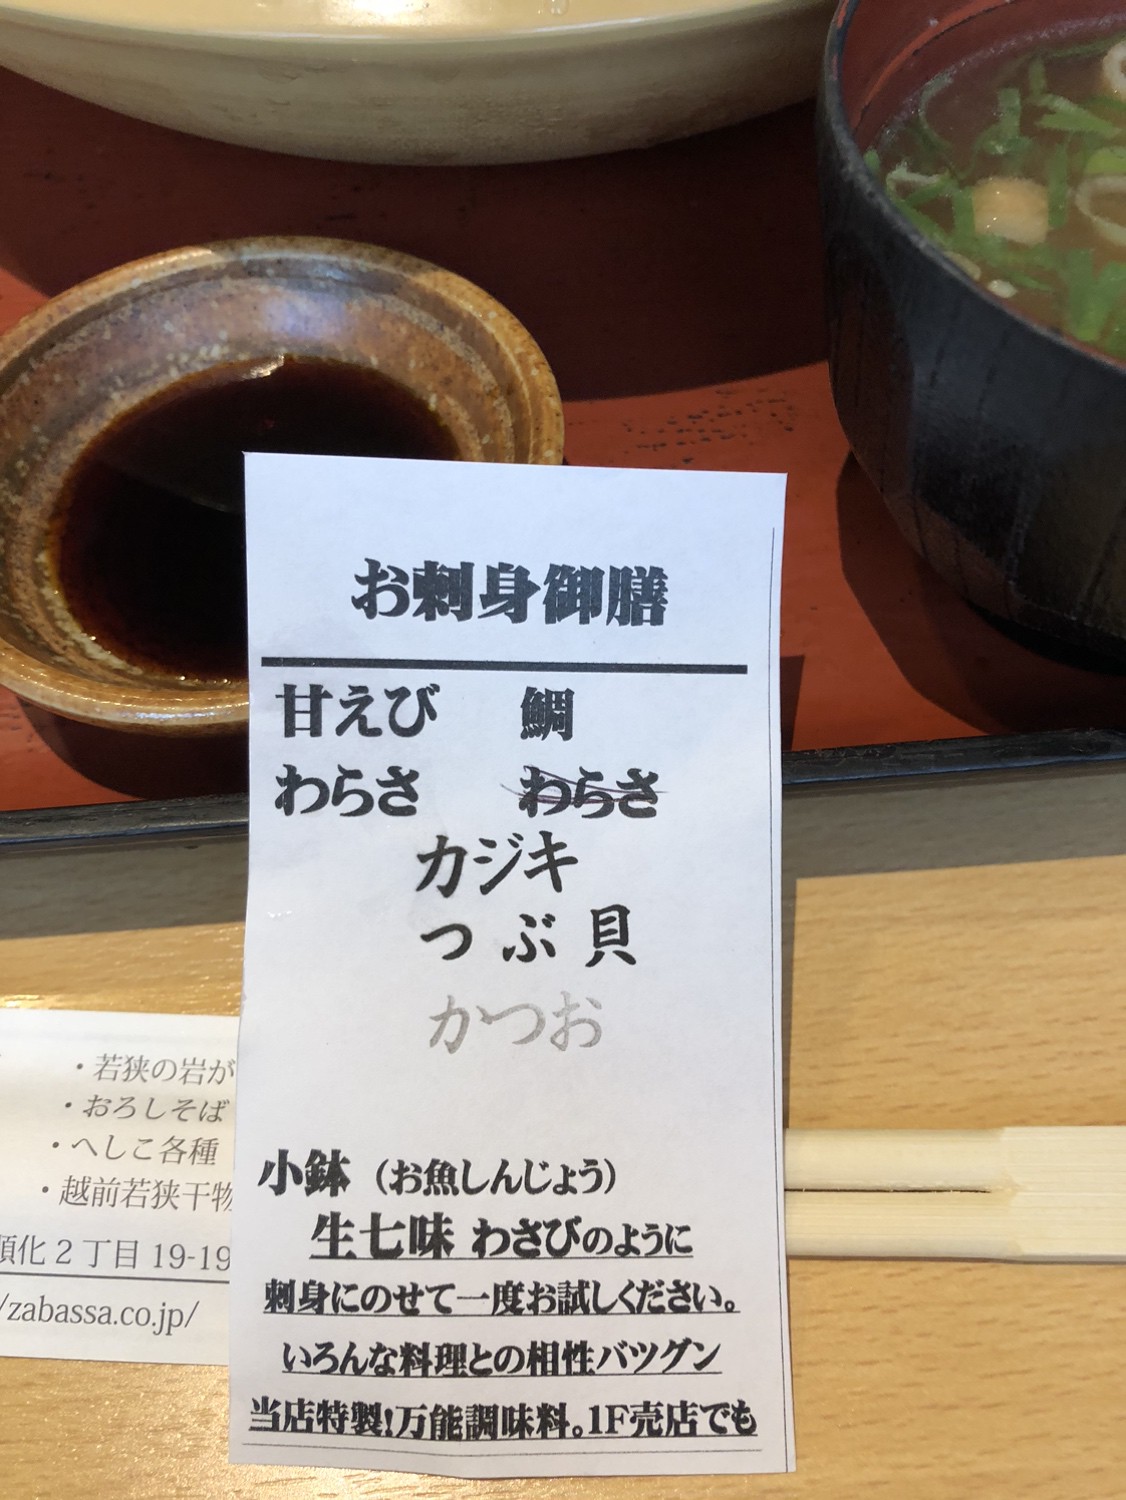 お刺身御膳
甘えび 鯛
わらさ わらさ
カジキ
つぶ貝
かつお
小鉢（お魚しんじょう）
生七味 わさびのように
刺身にのせて一度お試しください。
いろんな料理との相性バツグン
当店特製!万能調味料。1F売店でも
・若狭の岩が
・おろしそば
・へしこ各種
・越前若狭干物
順化2丁目19-19
/zabassa.co.jp/